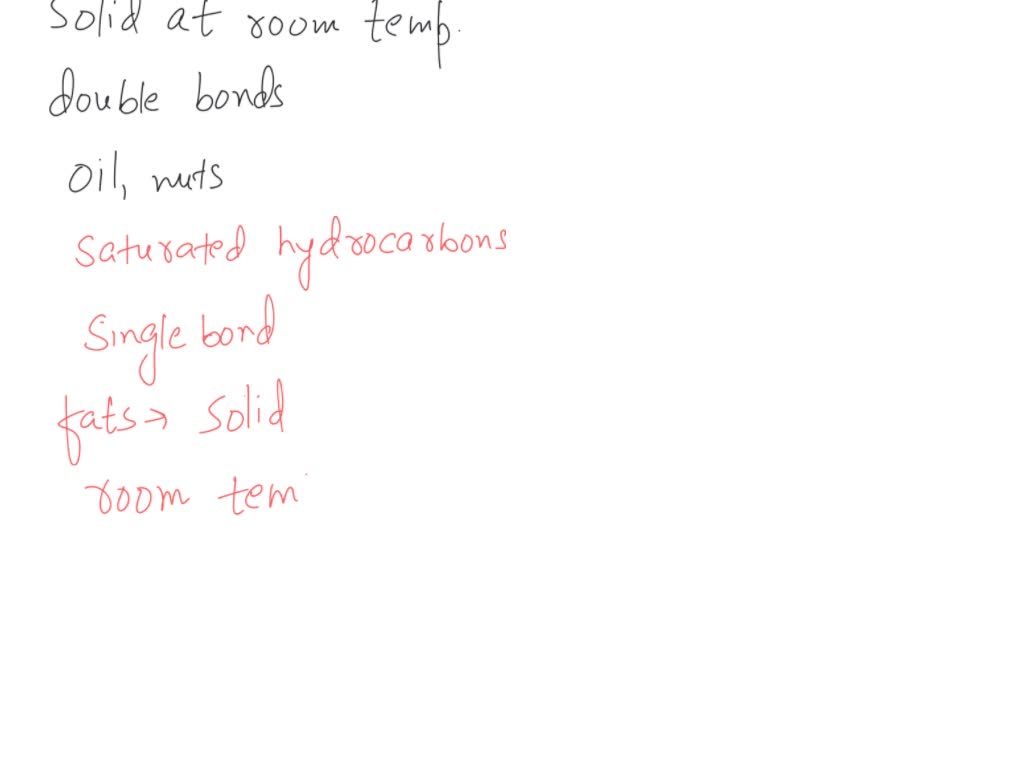 Solid at room temp.
double bonds
Oil, nuts
Saturated hydrocarbons
Single bond
fats → Solid
room tem